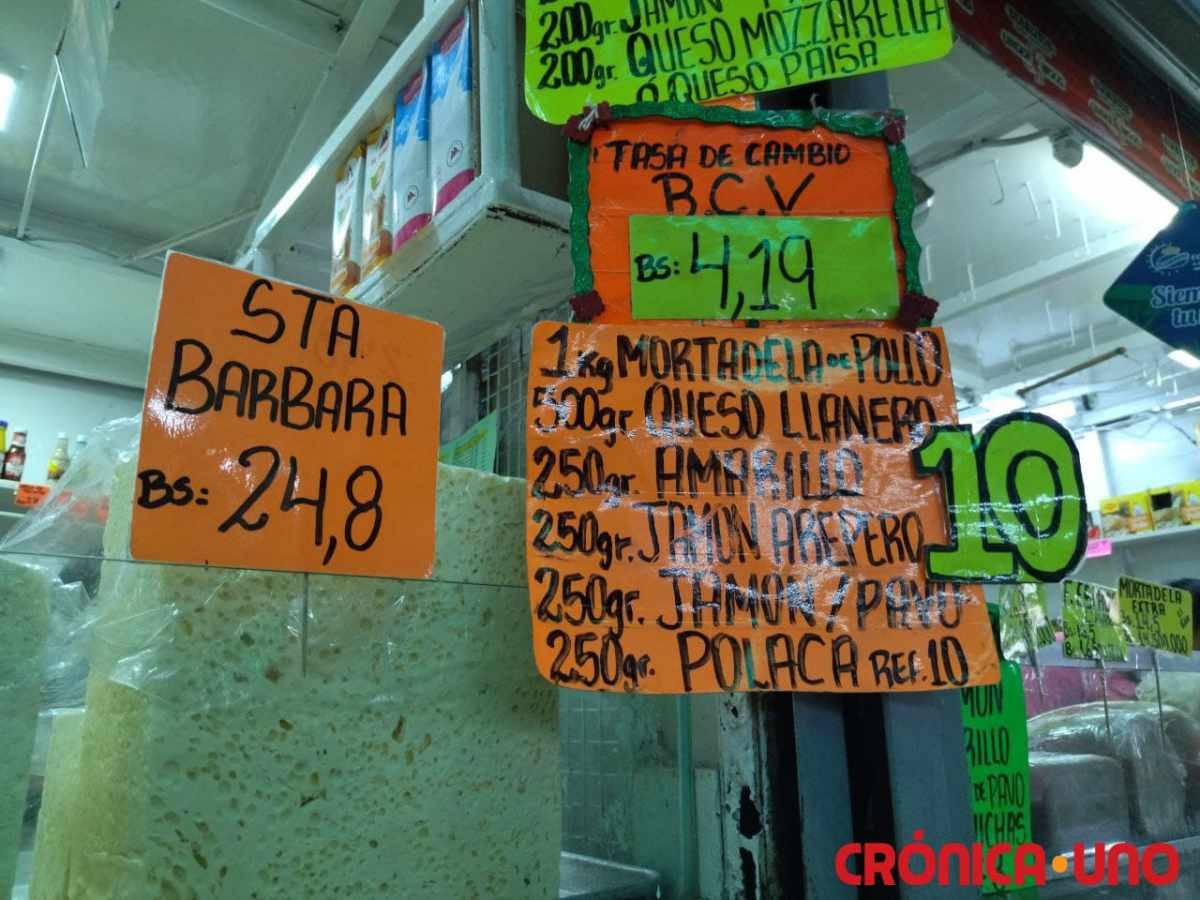 200gr. JAMON
200gr. QUESO MOZZARELLA
Ó QUESO PAISA
TASA DE CAMBIO
B.C.V
BS: 4,19
STA.
BARBARA
BS: 24,8
1 Kg MORTADELA DE POLLO
500gr. QUESO LLANERO
250gr. AMARILLO
250gr. JAMON AREPERO
250gr. JAMON / PAVO
250gr. POLACA REF. 10
10
MORTADELA
EXTRA
MON
RILLO
DE PAVO
ICHAS
CRÓNICA·UNO